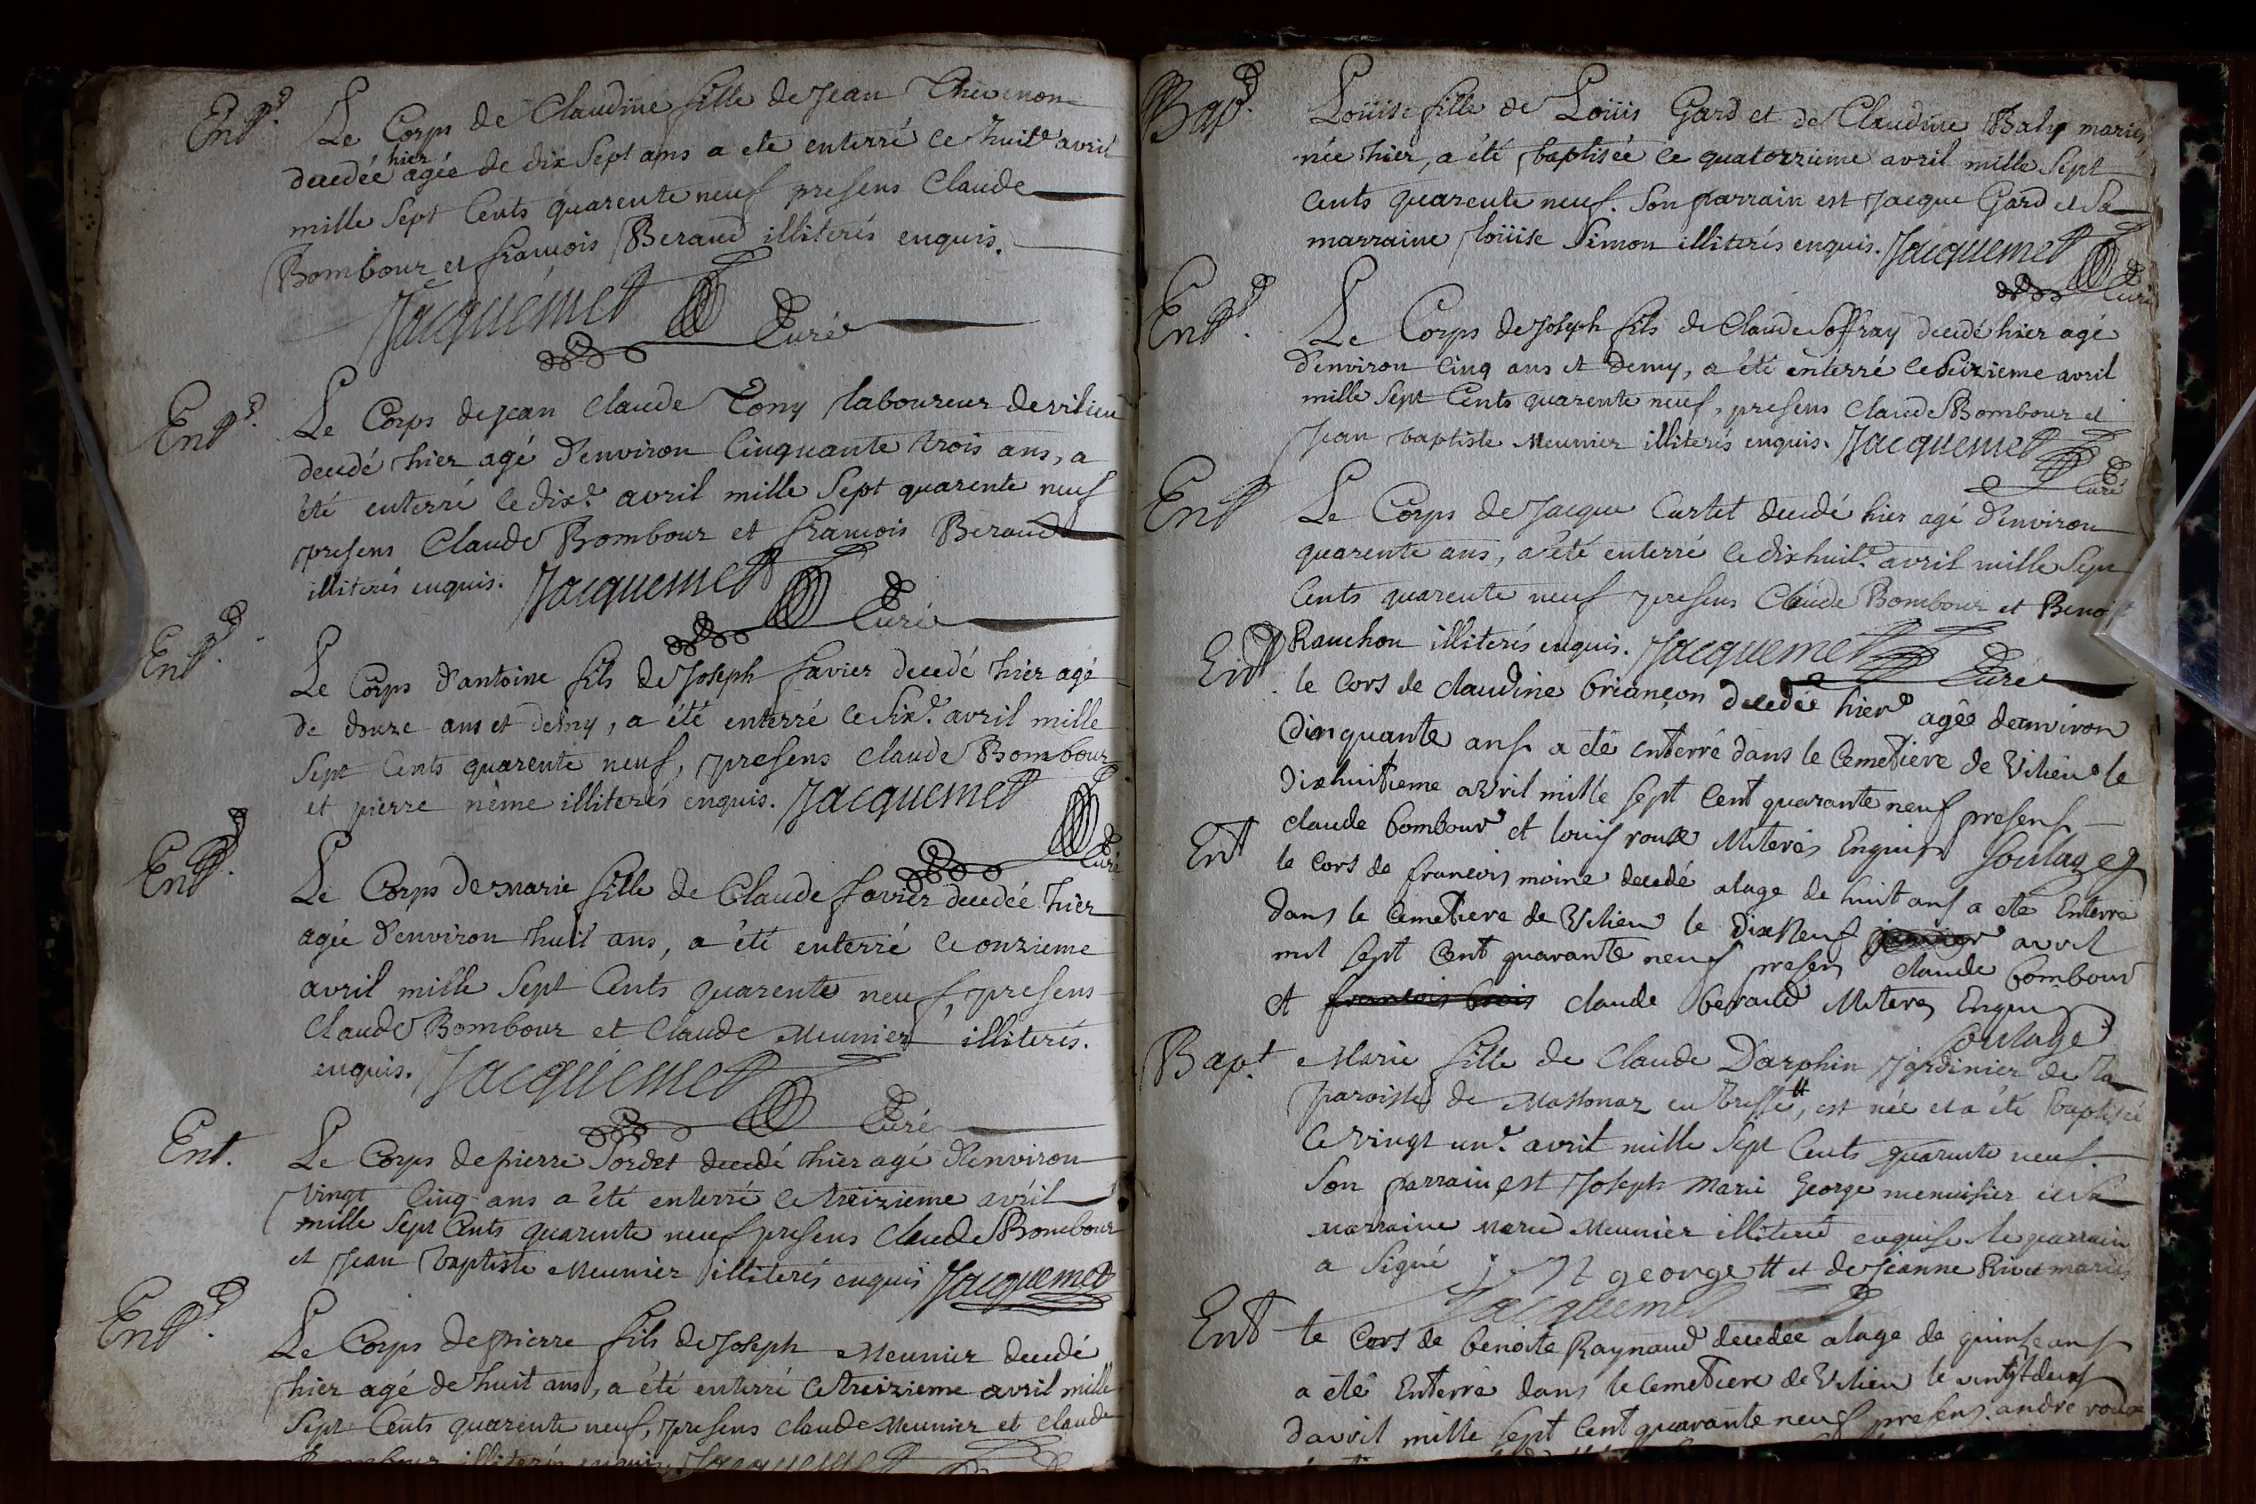 Ent.
Le Corps de Claudine fille de Jean Thevenon
decedée hier agée de dix Sept ans a eté enterré ce huit.e avril
mille Sept Cents quarente neuf presens Claude
Bombour et francois Beraud illiterés enquis.
Jacquemet Curé
Ent.
Le Corps de Jean Claude Tony laboureur de vilieu
decedé hier agé d'environ Cinquante trois ans, a
été enterré le dix.e avril mille Sept quarente neuf
presens Claude Bombour et francois Beraud
illiterés enquis. Jacquemet Curé
Ent.
Le Corps d'antoine fils de Joseph favier decedé hier agé
de douze ans et demy, a été enterré ce dix.e avril mille
Sept Cents quarente neuf, presens claude Bombour
et pierre nême illiterés enquis. Jacquemet
Curé
Ent.
Le Corps de marie fille de Claude favier decedée hier
agée d'environ huit ans, a été enterré ce onzieme
avril mille Sept Cents quarente neuf, presens
Claude Bombour et Claude Meunier illiterés.
enquis. Jacquemet Curé
Ent.
Le Corps de pierre Sordet decedé hier agé d'environ
vingt Cinq ans a été enterré ce treizieme avril
mille Sept Cents quarente neuf presens claude Bombour
et Jean baptiste Meunier illiterés enquis Jacquemet
Ent.
Le Corps de pierre fils de Joseph Meunier decedé
hier agé de huit ans, a été enterré ce treizieme avril mille
Sept Cents quarente neuf, presens claude Meunier et claude
Bombour illiterés enquis Jacquemet
Bapt.
Loüise fille de Loüis Gard et de Claudine Baly mariés,
née hier, a été baptisée ce quatorzieme avril mille Sept
Cents quarente neuf. Son parrain est Jacque Gard et Sa
marraine loüise Simon illiterés enquis. Jacquemet
Curé
Ent.
Le Corps de Joseph fils de Claude Soffray decedé hier agé
d'environ Cinq ans et demy, a été enterré ce Seizieme avril
mille Sept Cents quarente neuf, presens Claude Bombour et
Jean baptiste Meunier illiterés enquis. Jacquemet
Curé
Ent
Le Corps de Jacque Curtet decedé hier agé d'environ
quarente ans, a été enterré le dixhuit.e avril mille Sept
Cents quarente neuf presens Claude Bombour et Benoit
Ranchon illiterés enquis. Jacquemet Curé
Ent.
le Cors de claudine briançon decedée hier agée deanviron
Cinquante ans a eté Enterré dans le Cemetiere de Vilieu le
Dixhuitieme avril mille sept Cent quarante neuf presens
claude bombour et louis roux illiteres Enquis Soulage
Ent
le cors de francois moine decedé alage de huit ans a eté Enterré
dans le Cemetiere de Vilieu le Dix neuf avril
mil sept Cent quarante neuf presens claude bombour
et francois claude beraud illiteres Enquis
Soulage
Bapt.
Marie fille de Claude Darphin Jardinier de la
paroisse de Massonaz en bresse #, est née et a été baptisée
ce vingt un.e avril mille Sept Cents quarente neuf.
Son parrain est Joseph Marie George menuisier et Sa
marraine Marie Meunier illiteré enquise le parrain
a Signé george # et de Jeanne Rivet mariés
Jacquemet
Ent
le Cors de benoite Raynaud decedée alage de quinse ans
a eté Enterré dans le Cemetiere de Vilieu le vingtdeux
d'avril mille sept Cent quarante neuf presens. andré roux